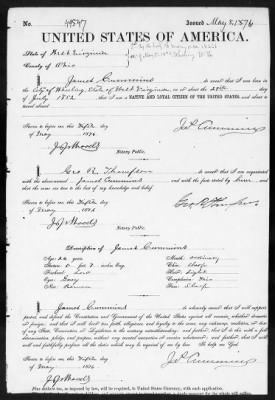 No. 49547 Issued May 8, 1876
UNITED STATES OF AMERICA.
State of West Virginia
County of Ohio
I, James Cummins do swear that I was born in the
City of Wheeling, State of West Virginia, on or about the 28th day
of July 1852, that I am a NATIVE AND LOYAL CITIZEN OF THE UNITED STATES
Sworn to before me this Fifth day
of May 1876
Jas. Cummins
J. G. Woods
I, Geo. R. Thompson do swear that I am acquainted
with the above named James Cummins and with the facts stated by him and
that the same are true to the best of my knowledge and belief.
Sworn to before me this Fifth day
of May 1876
Geo R Thompson
J. G. Woods
Description of James Cummins
Age: 23 years
Stature: 5 ft. 7 inches Eng.
Forehead: Low
Eyes: Gray
Nose: Roman
Mouth: ordinary
Chin: sharp
Hair: Light
Complexion: Fair
Face: Sharp
I, James Cummins do solemnly swear that I will support,
protect and defend the Constitution and Government of the United States against all enemies, whether domestic
or foreign; and that I will bear true faith, allegiance and loyalty to the same, any ordinance, resolution, or law
of any State, Convention or Legislature to the contrary notwithstanding; and further, that I do this with a full
determination, pledge and purpose, without any mental reservation or evasion whatsoever; and further, that I
will well and faithfully perform all the duties which may be required of me by law. So help me God.
Sworn to before me this Fifth day
of May 1876
Jas. Cummins
J. G. Woods